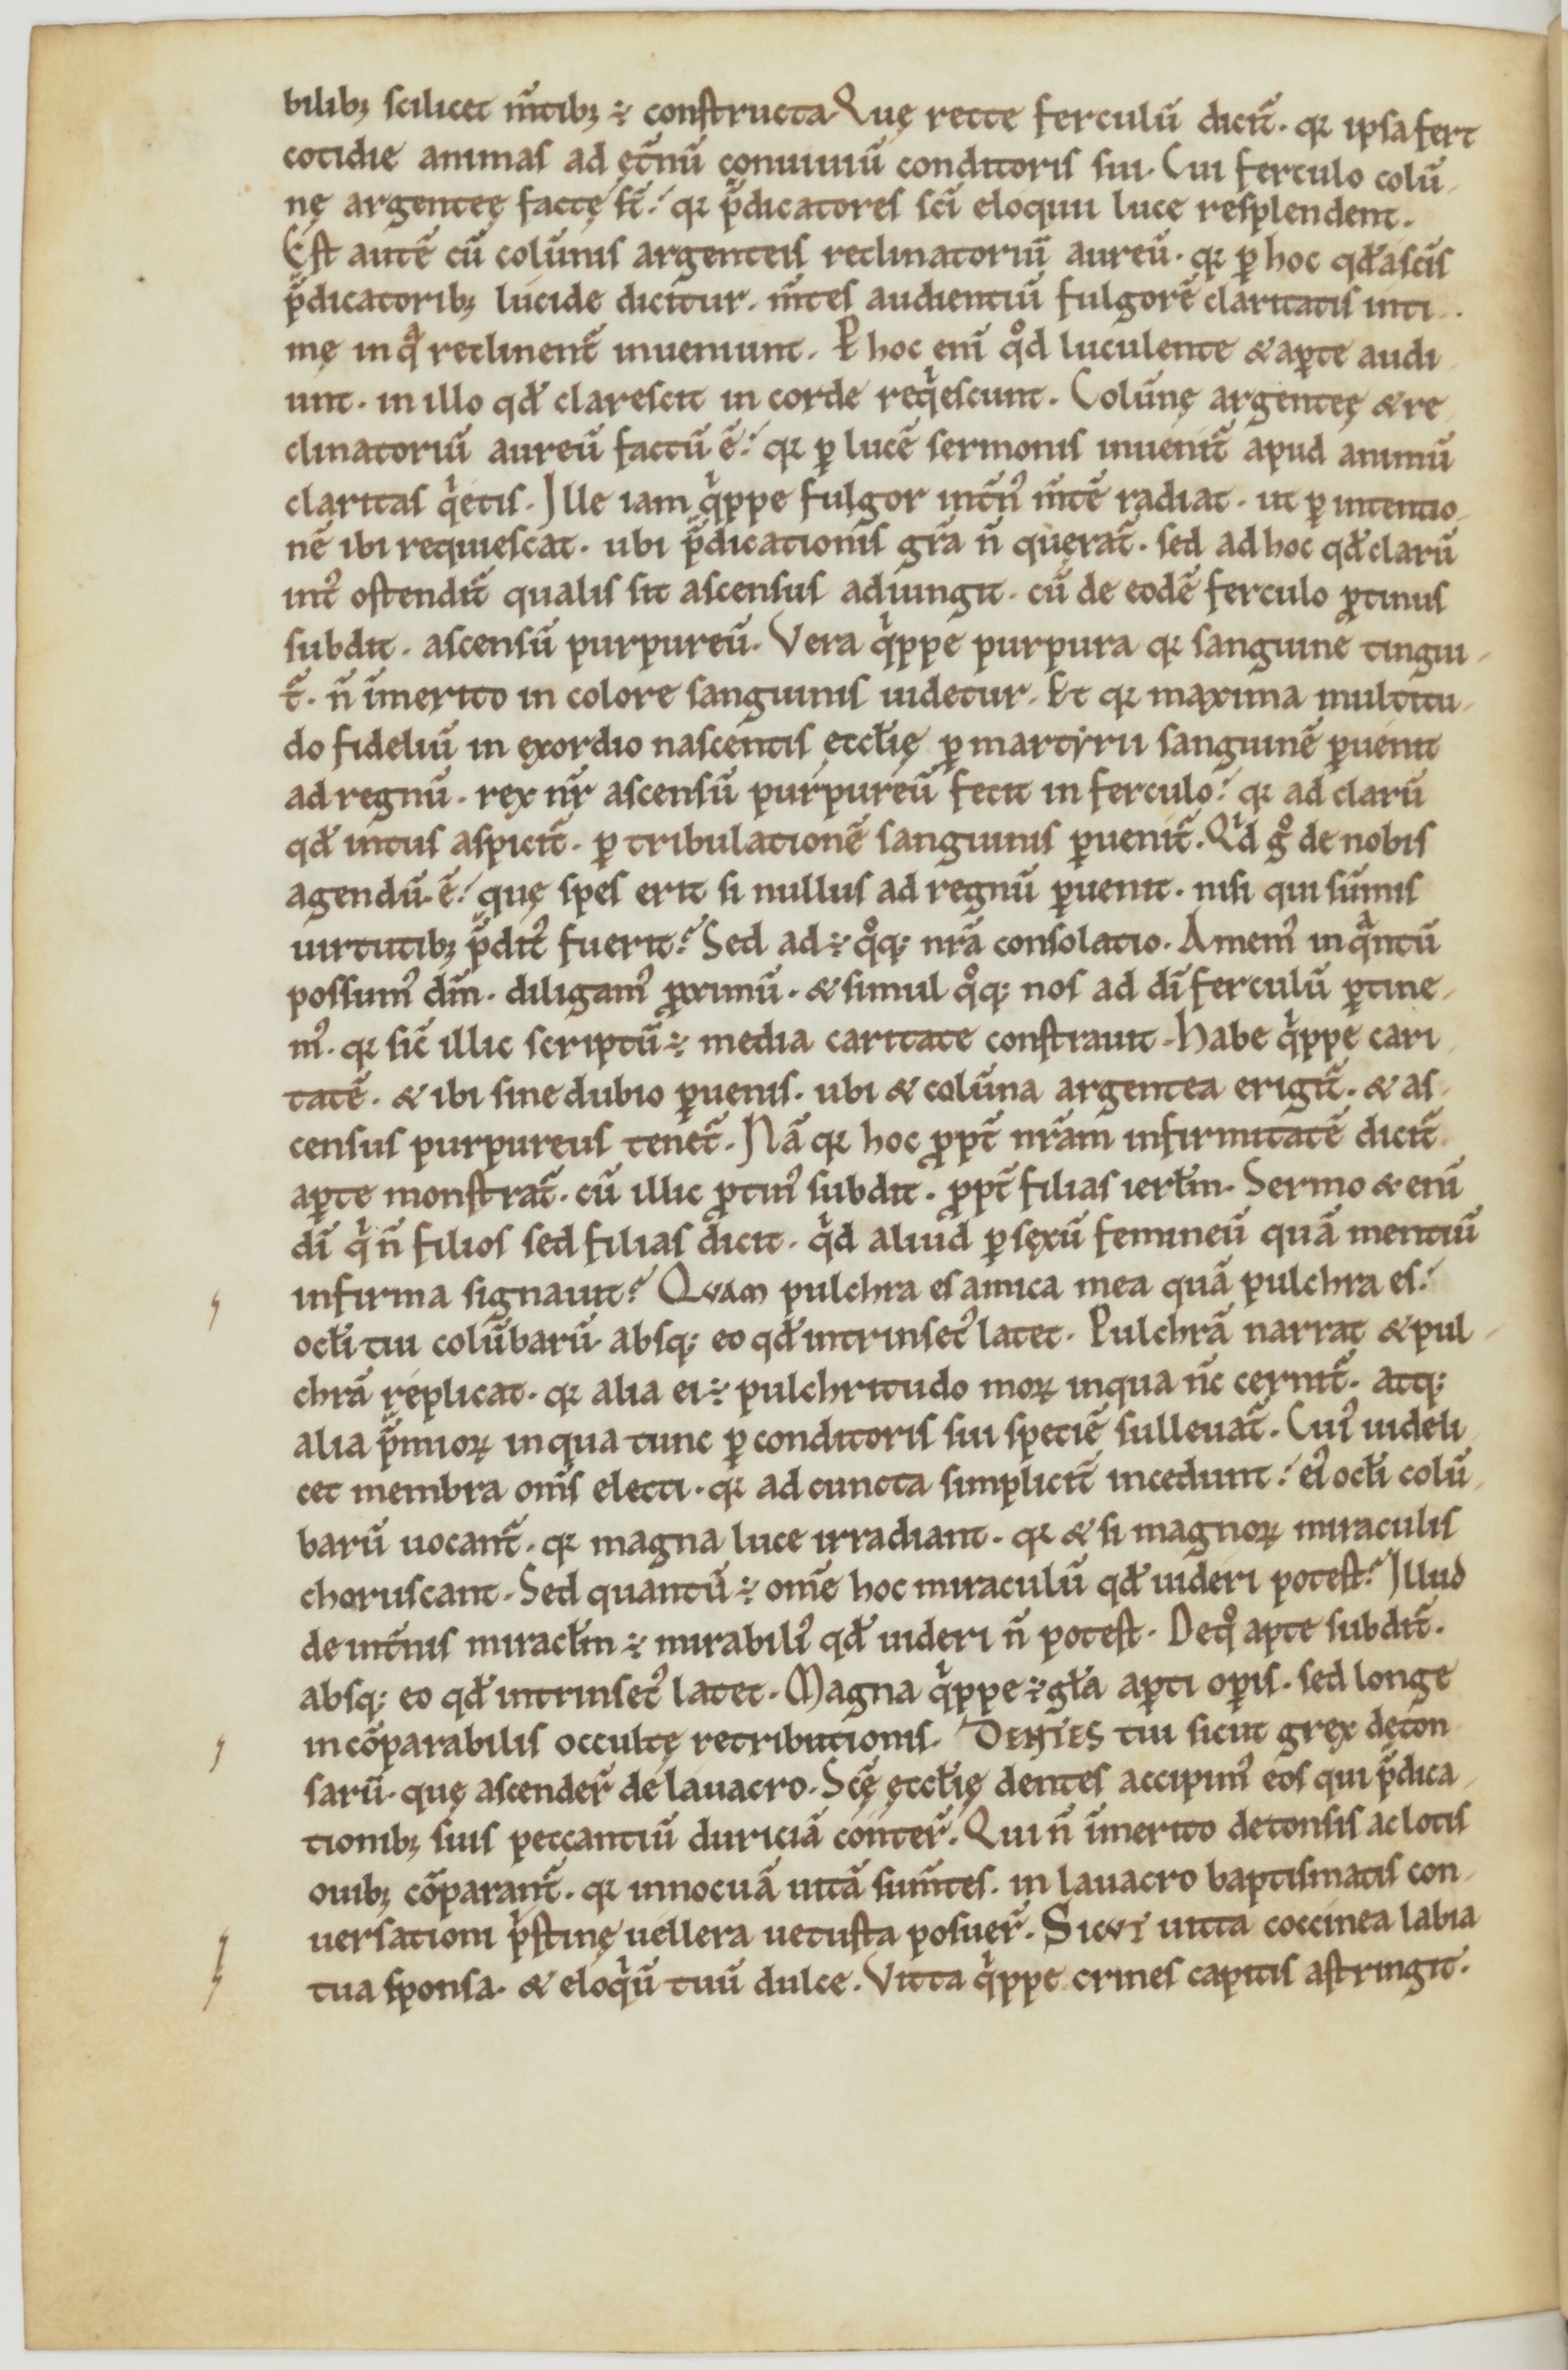 bilibꝫ scilicet m̅tibꝫ ÷ constructa. Quę recte ferculū dicit̅. qꝛ ipsa fert
cotidie animas ad ęt̅nū conuiuiū conditoris sui. Cui ferculo colū
nę argenteę factę st̅. qꝛ p̅dicatores sc̅i eloquii luce resplendent.
Est autē cū colūnis argenteis reclinatoriū aureū. qꝛ ꝑ hoc qd̛ a sc̅is
p̅dicatoribꝫ lucide dicitur. m̅tes audientiū fulgorē claritatis inti
mę in qͣ reclinent̅ inueniunt. Ꝑ hoc eni̅ qͦd luculente & aꝑte audi
unt. in illo qd̛ clarescit in corde reqͥescunt. Colūnę argenteę & re
clinatoriū aureū factū ē. qꝛ ꝑ lucē sermonis inuenit̅ apud animū
claritas qͥetis. Ille iam qͥppe fulgor int̅nꝰ m̅tē radiat. ut ꝑ intentio
nē ibi requiescat. ubi p̅dicationis gr̅a n̅ quęrat̅. sed ad hoc qd̛ clarū
intꝰ ostendit̅ qualis sit ascensus adiungit. cū de eodē ferculo ꝓtinus
subdit. ascensū purpureū. Vera qͥppe purpura qꝛ sanguine tingui
t̅. n̅ īmerito in colore sanguinis uidetur. Et qꝛ maxima multitu
do fideliū in exordio nascentis ęccłię ꝑ martyrii sanguinē ꝑuenit
ad regnū. rex nr̅ ascensū purpureū fecit in ferculo. qꝛ ad clarū
qd̛ intus aspicit̅. ꝑ tribulationē sanguinis ꝑuenit̅. Qͥd gͦ de nobis
agendū. ē. quę spes erit si nullus ad regnū ꝑuenit. nisi qui sūmis
uirtutibꝫ p̅ditꝰ fuerit? Sed ad ÷ qͦqꝫ nr̅a consolatio. Amemꝰ in qͣntū
possumꝰ dm̅. diligamꝰ ꝓximū. & simul qͦqꝫ nos ad dī ferculū ꝑtine
mꝰ. qꝛ sic̅ illic scriptū ÷ media caritate constrauit. habe qͥppe cari
tatē. & ibi sine dubio ꝑuenis. ubi & colūna argentea erigit̅. & as
census purpureus tenet̅. Nā qꝛ hoc ꝓpt̅ nr̅am infirmitatē dicit̅
aꝑte monstrat̅. cū illic ꝓtinꝰ subdit. ꝓpt̅ filias ierłm. Sermo & eni̅
dī qͥ n̅ filios sed filias dicit. qͥd aliud ꝑ sexū femineū quā mentiū
infirma signauit? Qvam pulchra es amica mea quā pulchra es.
ocłi tui colūbarū. absqꝫ eo qd̛ intrinsecꝰ latet. Pulchrā narrat & pul
chrā replicat. qꝛ alia ei ÷ pulchritudo moꝝ in qua nc̅ cernit̅. atqꝫ
alia p̅mioꝝ in qua tunc ꝑ conditoris sui speciē sulleuat̅. Cuiꝰ uideli
cet membra om̅s electi. qꝛ ad cuncta simplicit̅ incedunt. eiꝰ ocłi colū
barū uocant̅. qꝛ magna luce irradiant. qꝛ & si magnoꝝ miraculis
choruscant. Sed quantū ÷ om̅e hoc miraculū qd̛ uideri potest? Illud
de int̅nis miracłm ÷ mirabiliꝰ qd̛ uideri n̅ potest. Deqͦ apte subdit̅.
absqꝫ eo qd̛ intrinsecꝰ latet. Magna qͥppe ÷ gła aꝑti oꝑis. sed longe
incōparabilis occultę retributionis. Dentes tui sicut grex deton
sarū. quę ascender̅ de lauacro. Scę̅ ęccłię dentes accipimꝰ eos qui p̅dica
tionibꝫ suis peccantiū duriciā conter̅. Qui n̅ īmerito detonsis ac lotis
ouibꝫ cōparant̅. qꝛ innocuā uitā sum̅tes. in lauacro baptismatis con
uersationi pͥstinę uellera uetusta posuer̅. Sicvt uitta coccinea labia
tua sponsa. & eloqͥū tuū dulce. Vitta qͥppe crines capitis astringit.